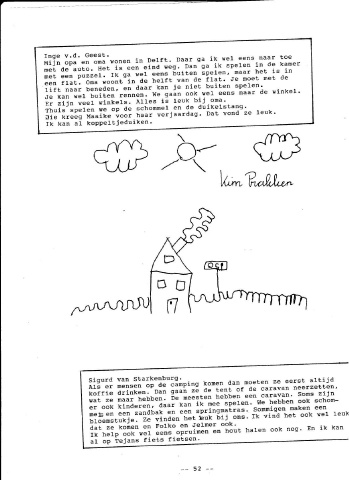 Inge v.d. Geest.
Mijn opa en oma wonen in Delft. Daar ga ik wel eens naar toe
met de auto. Het is een eind weg. Dan ga ik spelen in de kamer
met een puzzel. Ik ga wel eens buiten spelen, maar het is in
een flat. Oma woont in de helft van de flat. Je moet met de
lift naar beneden, en daar kan je niet buiten spelen.
Je kan wel buiten rennen. We gaan ook wel eens naar de winkel.
Er zijn veel winkels. Alles is leuk bij oma.
Thuis spelen we op de schommel en de duikelstang.
Die kreeg Maaike voor haar verjaardag. Dat vond ze leuk.
Ik kan al koppeltjeduiken.
Kim Bakker
Sigurd van Starkenburg.
Als er mensen op de camping komen dan moeten ze eerst altijd
koffie drinken. Dan gaan ze de tent of de caravan neerzetten,
wat ze maar hebben. De meesten hebben een caravan. Soms zijn
er ook kinderen, daar kan ik mee spelen. We hebben ook schom-
mels en een zandbak en een springmatras. Sommigen maken een
bloemstukje. Ze vinden het leuk bij ons. Ik vind het ook wel leuk
dat ze komen en Folko en Jelmer ook.
Ik help ook wel eens opruimen en hout halen ook nog. En ik kan
al op Tejans fiets fietsen.
-- 52 --